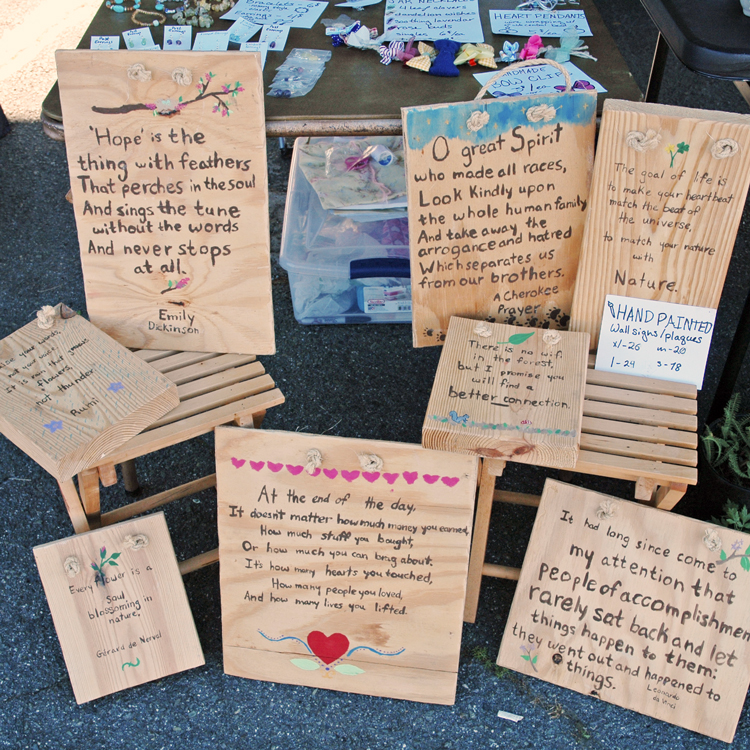 EAR NECKLACES
4 leaf clovers
dandelion wishes
soothing lavender
rose buds
HEART PENDANTS
HANDMADE
BOW CLIP
'Hope' is the
thing with feathers
That perches in the soul
And sings the tune
without the words
And never stops
at all.
Emily
Dickinson
O great Spirit
who made all races,
Look kindly upon
the whole human family
And take away the
arrogance and hatred
Which separates us
from our brothers.
A Cherokee
Prayer
The goal of life is
to make your heartbeat
match the beat of
the universe,
to match your nature
with
Nature.
HAND PAINTED
Wall signs/plaques
xl-26 m-20
l-24 s-18
your words,
not your
It is rain that grows
flowers,
not thunder
Rumi
There is no wifi
in the forest,
but I promise you
will find a
better connection.
At the end of the day,
It doesn't matter how much money you earned,
How much stuff you bought,
Or how much you can brag about.
It's how many hearts you touched,
How many people you loved,
And how many lives you lifted.
Every flower is a
soul
blossoming in
nature.
Gérard de Nerval
It had long since come to
my attention that
people of accomplishment
rarely sat back and let
things happen to them:
they went out and happened to
things.
Leonardo
da Vinci